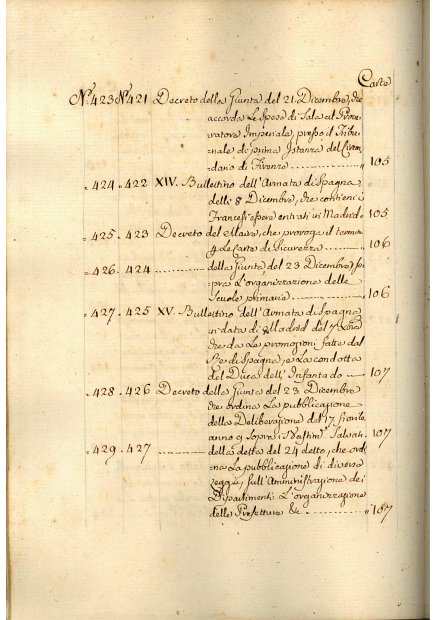 Carte
N.° 423 N.° 421 Decreto della Giunta del 21. Dicembre, che
accorda Le Spese di Sala al Procu-
ratore Imperiale, presso il Tribu-
nale di prima Istanza del Circon-
dario di Firenze 105
424 422 XIV. Bullettino dell'Armata di Spagna
delli 8 Dicembre, che contiene i
Francesi essere entrati in Madrid 105
425 423 Decreto del Maire, che proroga il termine
Le Carte di Sicurezza 106
426 424 della Giunta del 23 Dicembre, so-
pra L'organizzazione delle
Scuole primarie 106
427 425 XV. Bullettino dell'Armata di Spagna
in data di Madrid del 7
che da La promozioni fatte dal
Re di Spagna, e La condotta
del Duca dell'Infantado 107
428 426 Decreto della Giunta del 23 Dicembre
che ordina La pubblicazione
della Deliberazione del 17 fiorile
anno 9 Sopra i Salarati 107
429 427 della detta del 24 detto, che ordi-
na La pubblicazione di diverse
Leggi, sull'Amministrazione dei
Dipartimenti L'organizzazione
delle Prefetture &c. 107